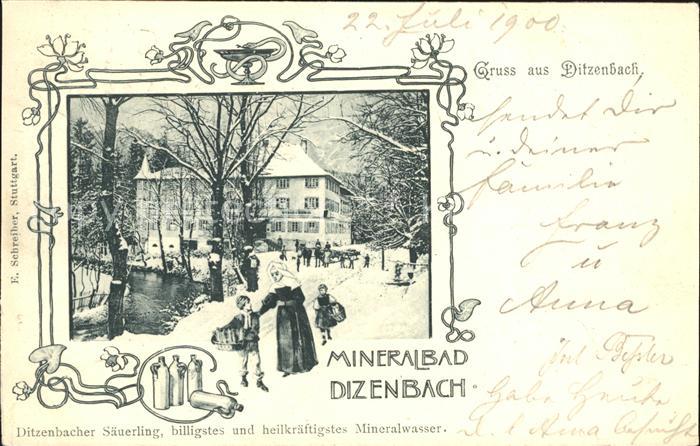 22. Juli 1900.
Gruss aus Ditzenbach.
sendet Dir
u. deiner
Familie
Franz
u
Anna
Habe Heute
Anna
E. Schreiber, Stuttgart.
MINERALBAD
DIZENBACH.
Ditzenbacher Säuerling, billigstes und heilkräftigstes Mineralwasser.